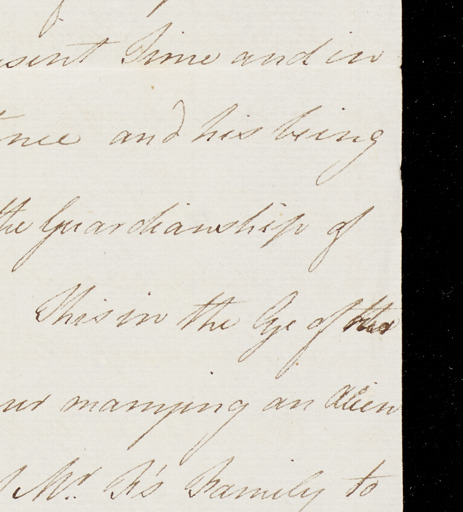 esent Time and in
ence and his being
the Guardianship of
This in the Eye of the
our managing an Alien
Mr. F's Family to